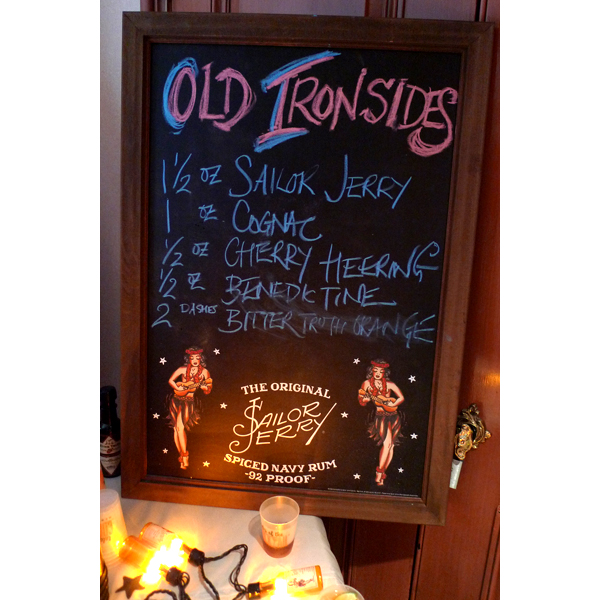 OLD IRONSIDES
1 1/2 OZ SAILOR JERRY
1 OZ COGNAC
1/2 OZ CHERRY HEERING
1/2 OZ BENEDICTINE
2 DASHES BITTER TRUTH ORANGE
THE ORIGINAL
SAILOR
JERRY
SPICED NAVY RUM
-92 PROOF-